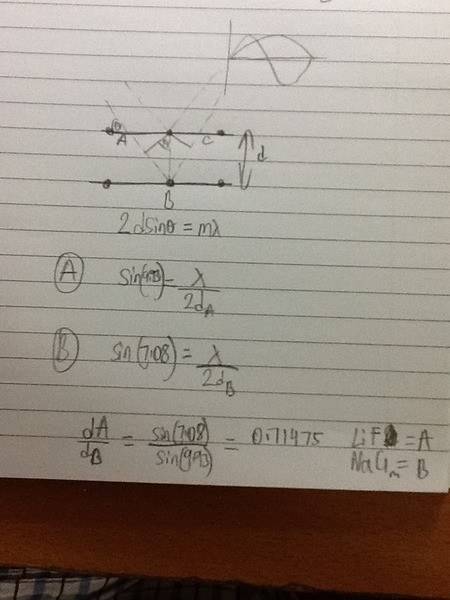 θ
A
C
d
B
2dsinθ = mλ
A sin(9.93) = λ / 2d_A
B sin(7.08) = λ / 2d_B
dA / d_B = sin(7.08) / sin(9.93) = 0.71475 LiF = A
NaCl = B